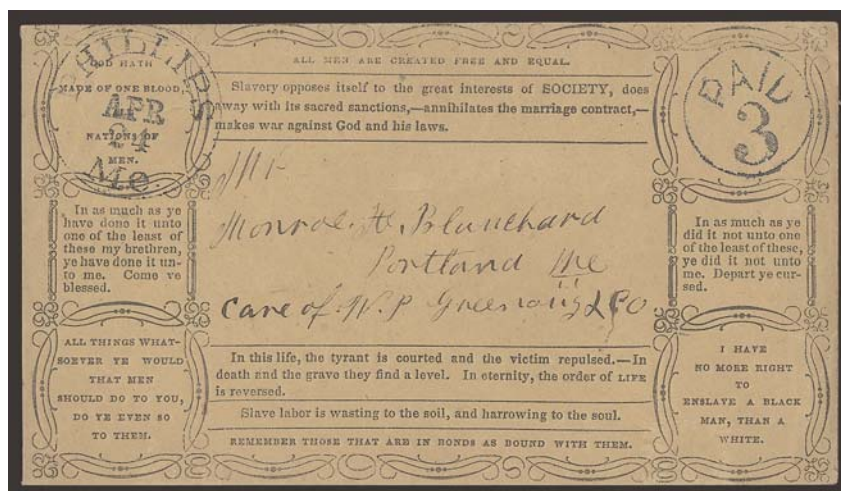 PHILLIPS
APR
24
Me.
GOD HATH
MADE OF ONE BLOOD,
NATIONS OF
MEN.
ALL MEN ARE CREATED FREE AND EQUAL.
Slavery opposes itself to the great interests of SOCIETY, does
away with its sacred sanctions,—annihilates the marriage contract,—
makes war against God and his laws.
PAID
3
Mr
Monroe. H. Blanchard
Portland Me
care of W. P
In as much as ye
have done it unto
one of the least of
these my brethren,
ye have done it un-
to me. Come ye
blessed.
In as much as ye
did it not unto one
of the least of these,
ye did it not unto
me. Depart ye cur-
sed.
ALL THINGS WHAT-
SOEVER YE WOULD
THAT MEN
SHOULD DO TO YOU,
DO YE EVEN SO
TO THEM.
In this life, the tyrant is courted and the victim repulsed.—In
death and the grave they find a level. In eternity, the order of LIFE
is reversed.
Slave labor is wasting to the soil, and harrowing to the soul.
REMEMBER THOSE THAT ARE IN BONDS AS BOUND WITH THEM.
I HAVE
NO MORE RIGHT
TO
ENSLAVE A BLACK
MAN, THAN A
WHITE.